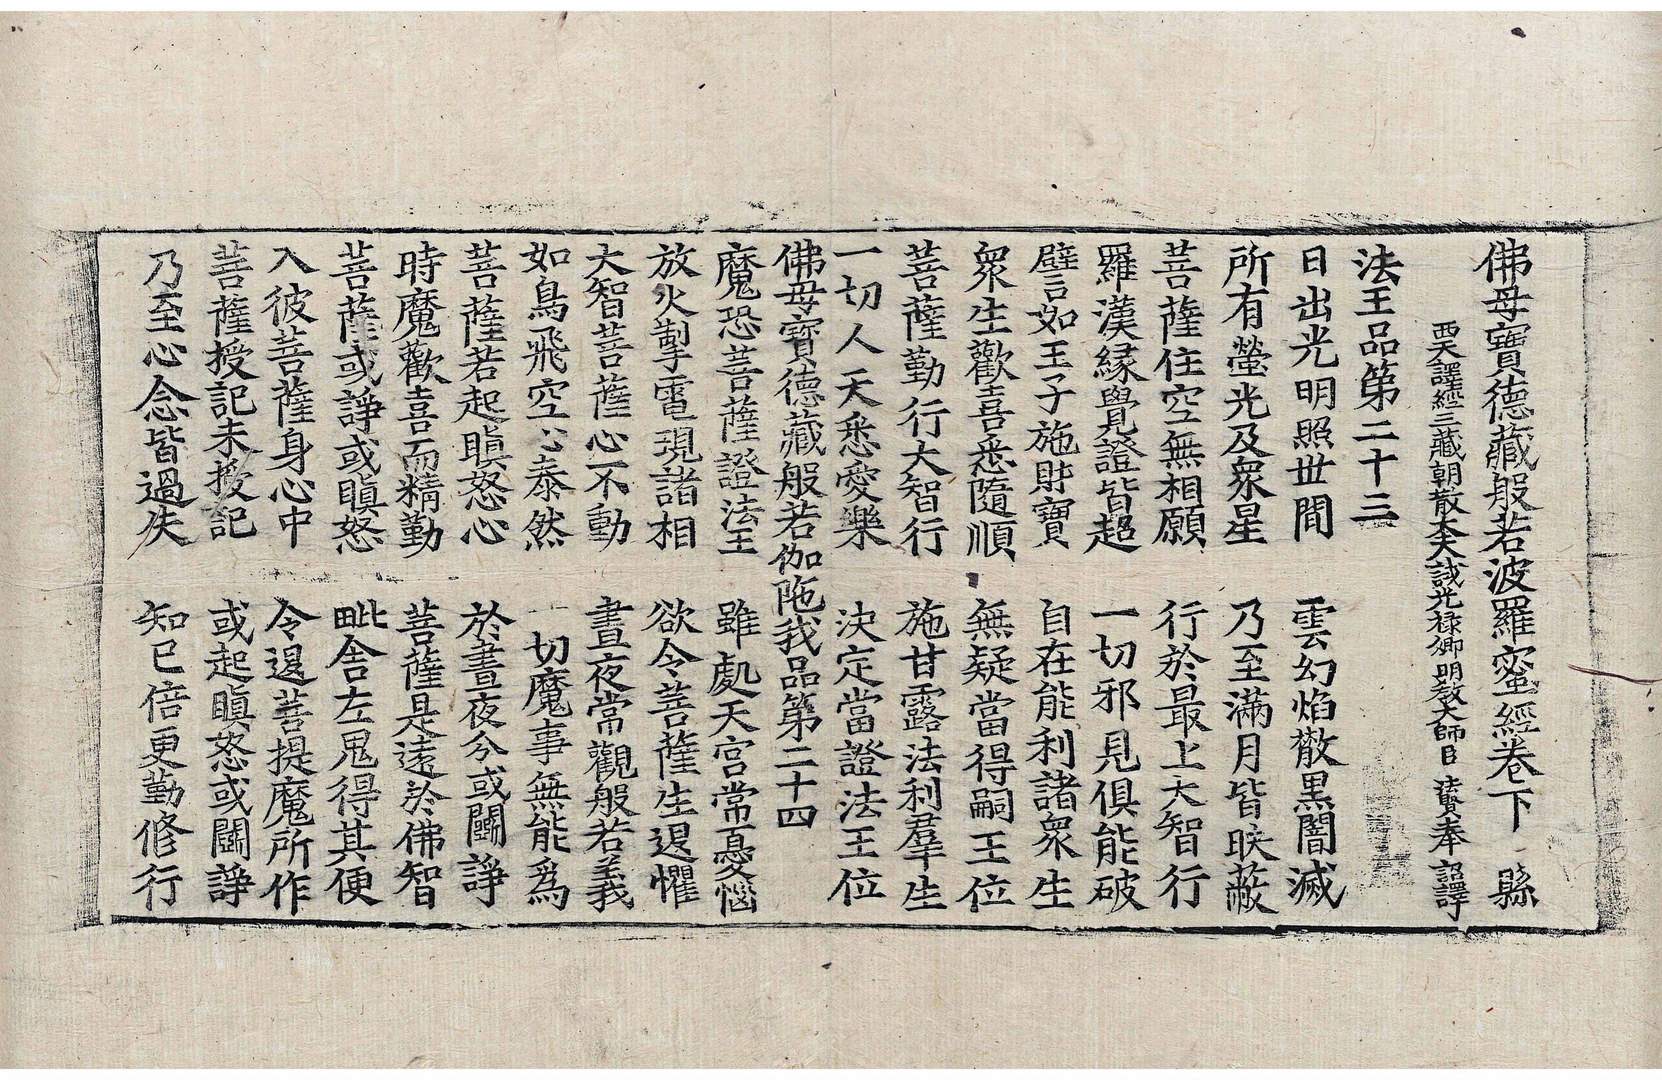 佛母寶德藏般若波羅蜜經卷下 縣
西天譯經三藏朝散大夫試光祿卿明教大師臣 法賢奉 詔譯
法王品第二十三
日出光明照世間 雲幻焰散黑闇滅
所有螢光及衆星 乃至滿月皆映蔽
菩薩住空無相願 行於最上大智行
羅漢緣覺證皆超 一切邪見俱能破
譬如王子施財寶 自在能利諸衆生
衆生歡喜悉隨順 無疑當得嗣王位
菩薩勤行大智行 施甘露法利羣生
一切人天悉愛樂 決定當證法王位
佛母寶德藏般若伽陁我品第二十四
魔恐菩薩證法王 雖處天宮常憂惱
放火掣電現諸相 欲令菩薩生退懼
大智菩薩心不動 晝夜常觀般若義
如鳥飛空心泰然 一切魔事無能爲
菩薩若起瞋怒心 於晝夜分或鬪諍
時魔歡喜而精勤 菩薩是遠於佛智
菩薩或諍或瞋怒 毗舍左鬼得其便
入彼菩薩身心中 令退菩提魔所作
菩薩授記未授記 或起瞋怒或鬪諍
乃至心念皆過失 知已倍更勤修行